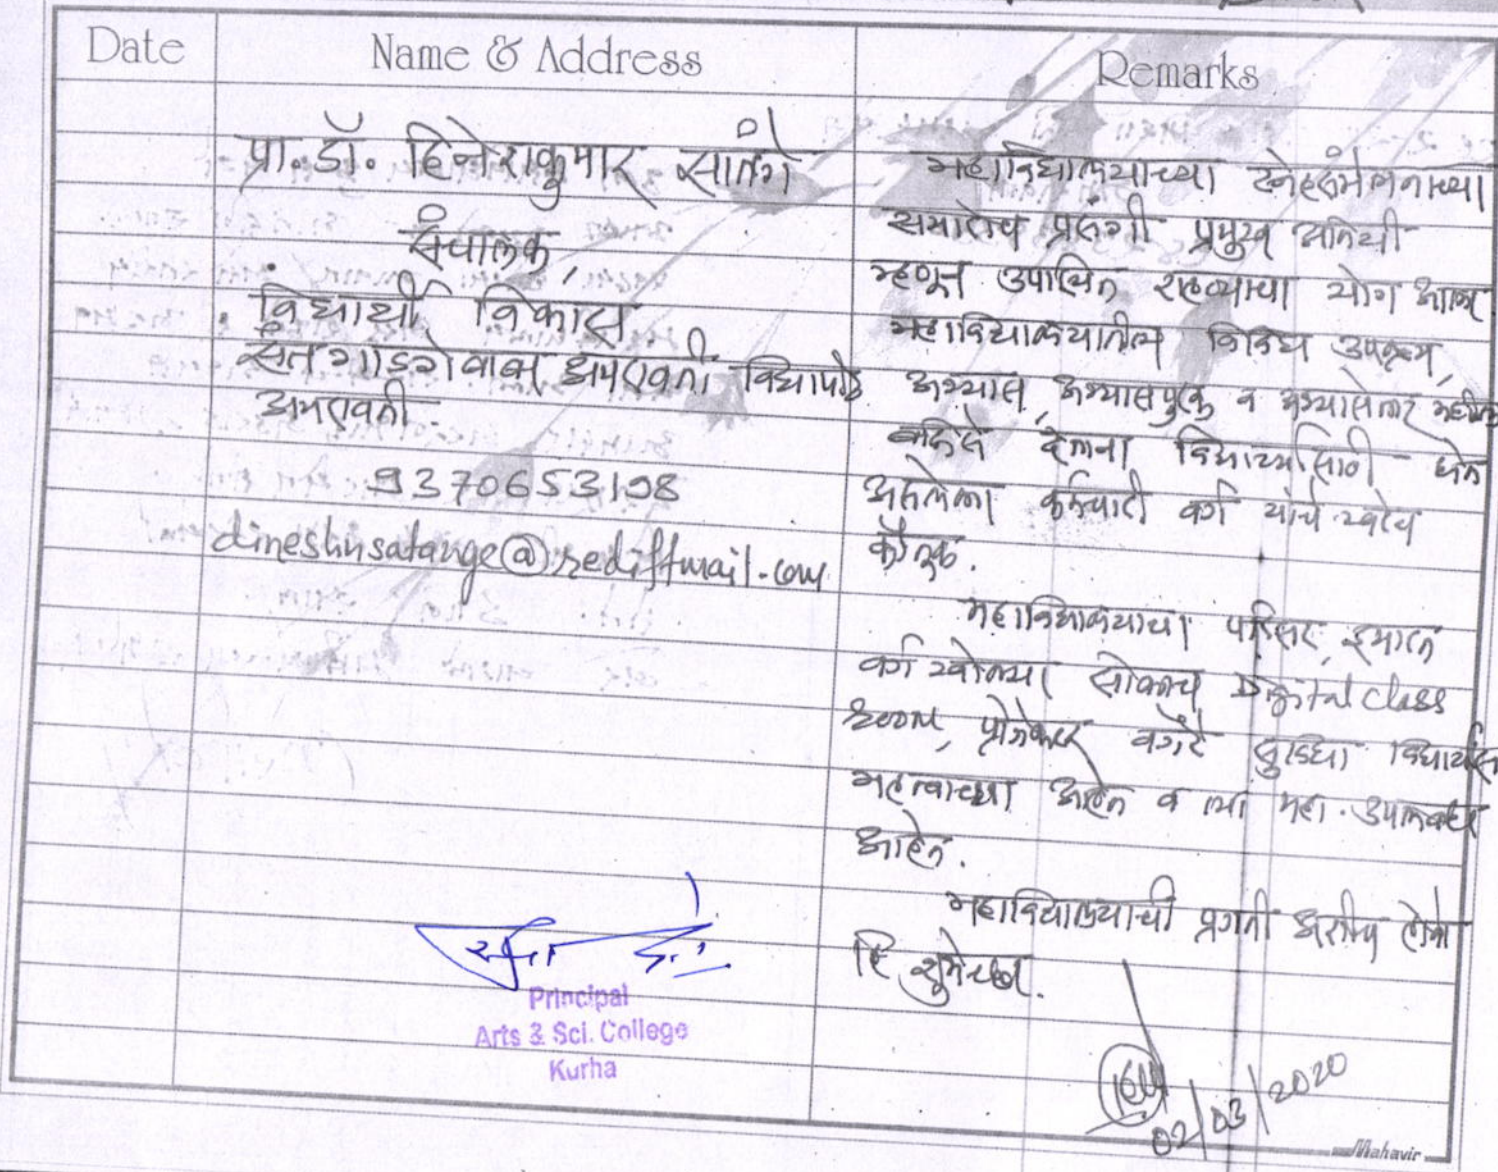 Date
Name & Address
Remarks
प्रा. डॉ. दिनेशकुमार सातंगे
संचालक,
विद्यार्थी विकास
संत गाडगेबाबा अमरावती विद्यापीठ
अमरावती.
9370653198
dineshnsatange@rediffmail.com
महाविद्यालयाच्या स्नेहसंमेलनाच्या
समारोप प्रसंगी प्रमुख अतिथी
म्हणून उपस्थित राहण्याचा योग आला
महाविद्यालयातील विविध उपक्रम,
अभ्यास, अभ्यासपुरक व अभ्यासेत्तर
विद्यार्थ्यांसाठी घेत
असलेला कर्मचारी वर्ग यांचे
कौतुक.
महाविद्यालयाचा परिसर, इमारत
वर्ग खोल्या सोबतच Digital class
room, प्रोजेक्टर वगैरे सुविधा
महत्वाच्या आहेत व त्या महा. उपलब्ध
आहेत.
महाविद्यालयाची प्रगती अशीच होवो
हि शुभेच्छा.
02/03/2020
Principal
Arts & Sci. College
Kurha
Mahavir